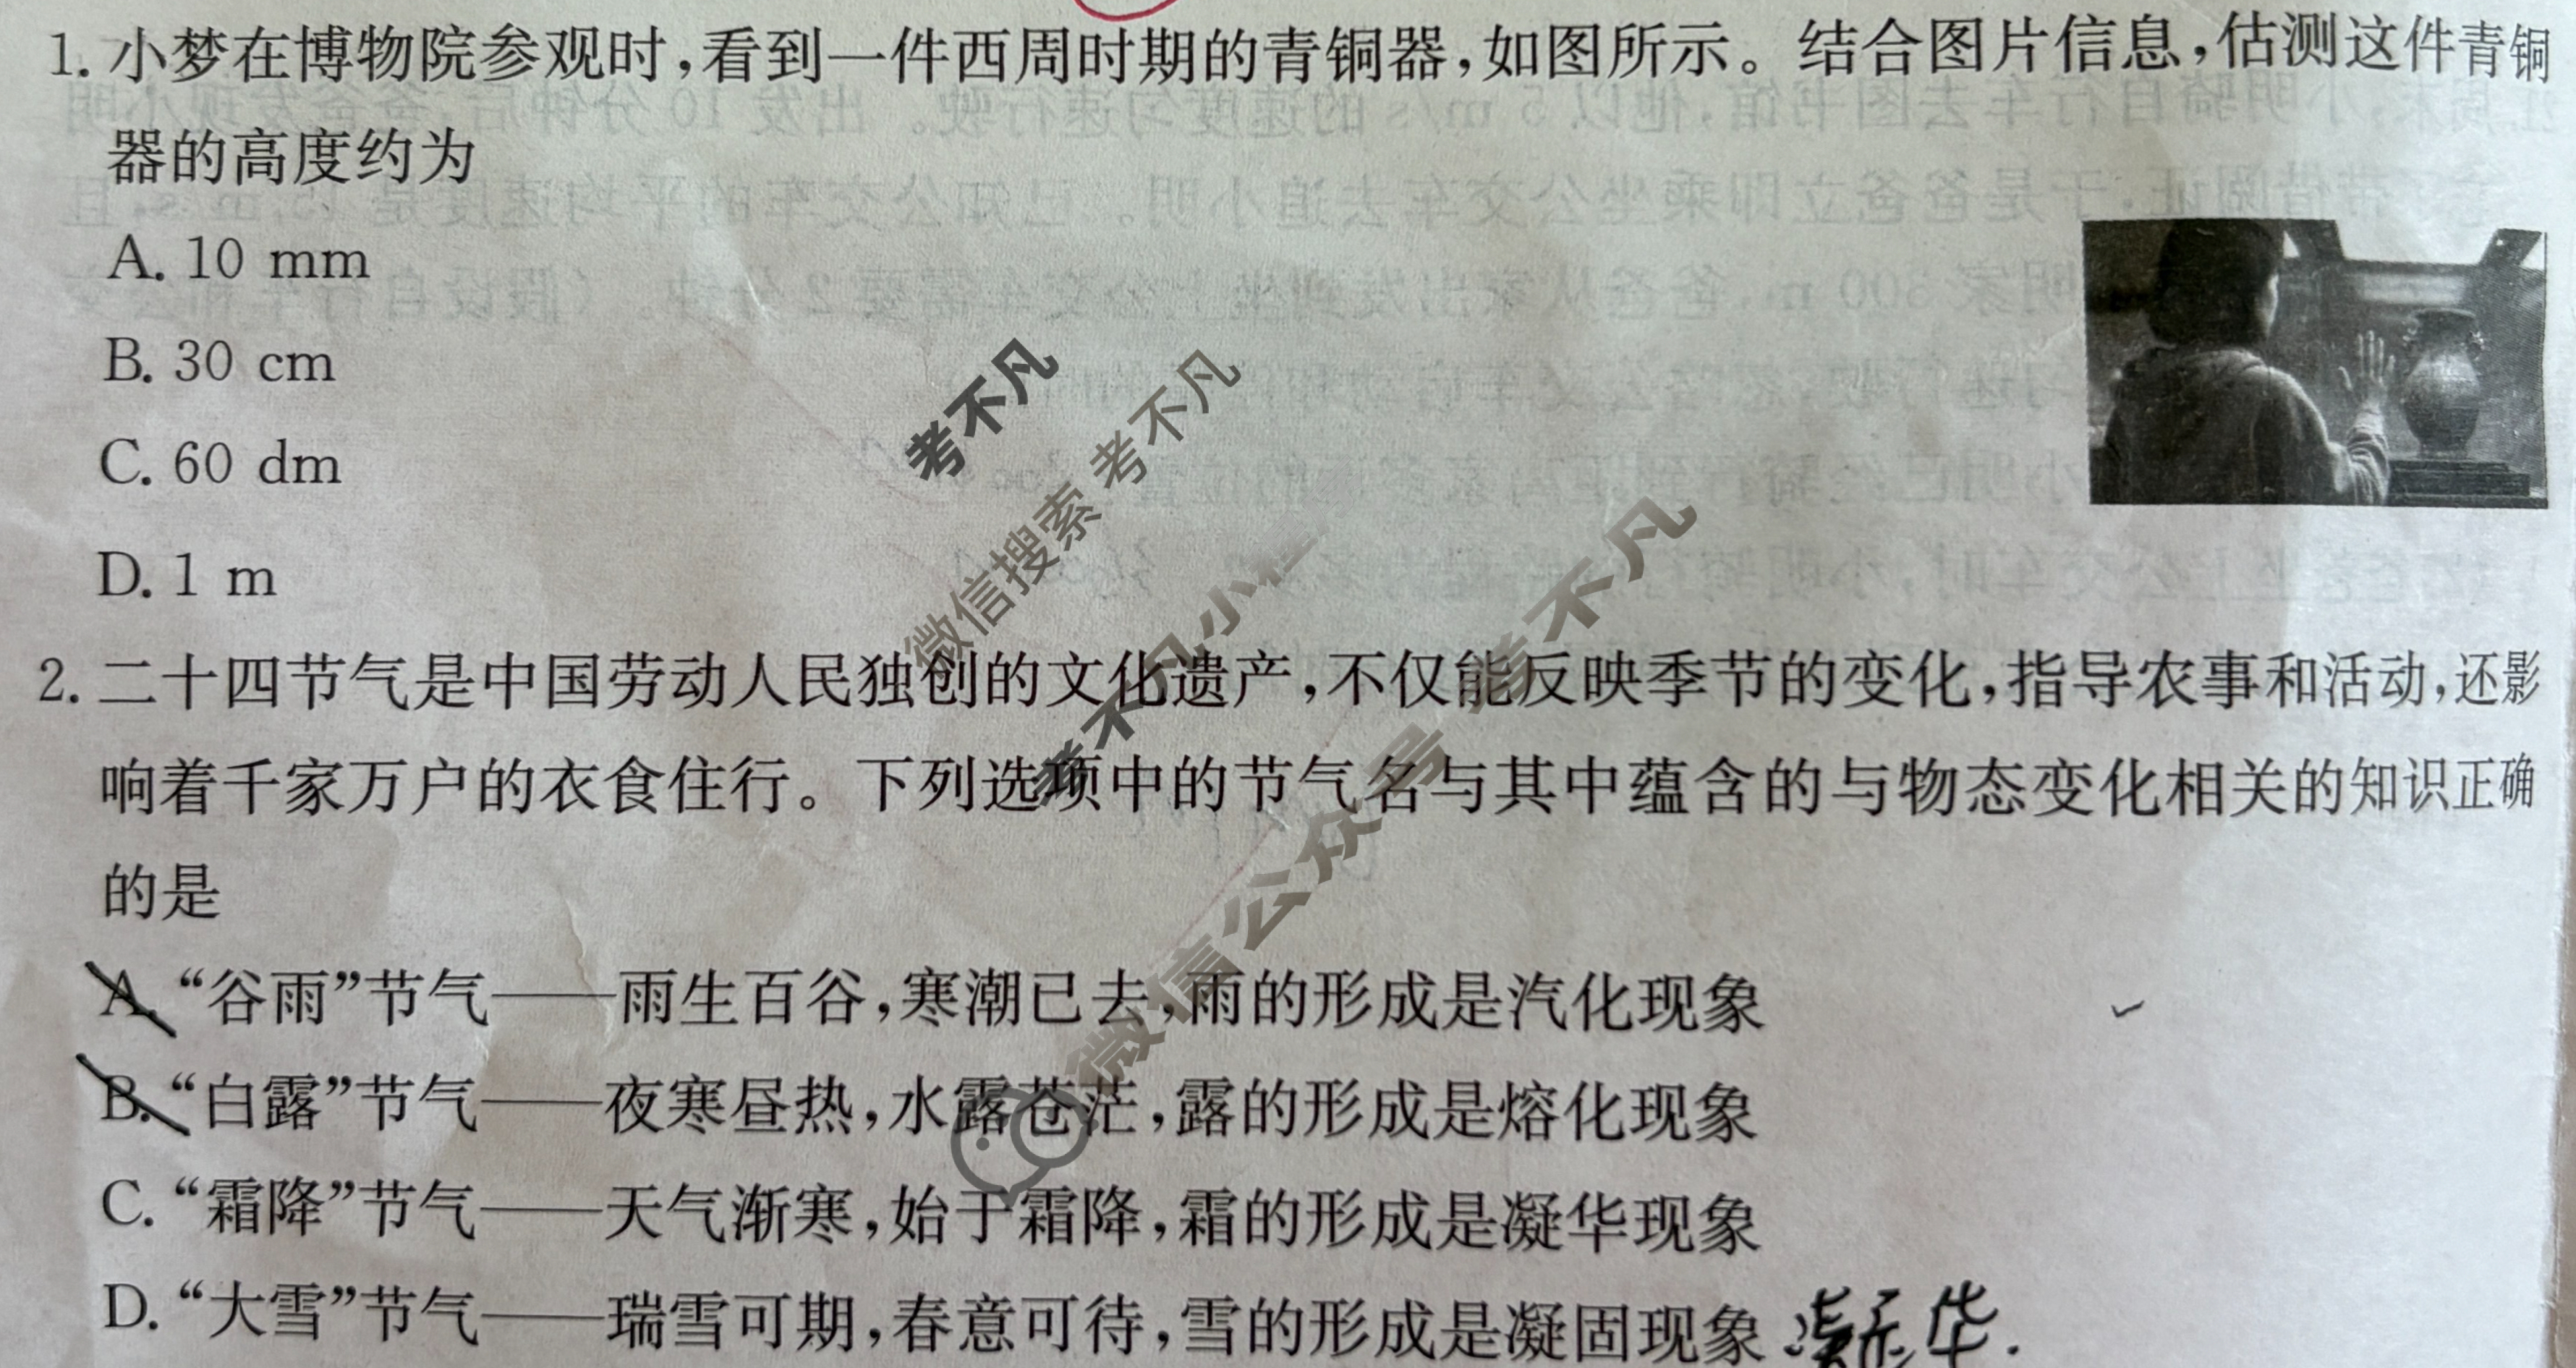 1. 小梦在博物院参观时,看到一件西周时期的青铜器,如图所示。结合图片信息,估测这件青铜
器的高度约为
A. 10 mm
B. 30 cm
C. 60 dm
D. 1 m
考不凡
微信搜索 考不凡
考不凡小程
微信公众号 考不凡
2. 二十四节气是中国劳动人民独创的文化遗产,不仅能反映季节的变化,指导农事和活动,还影
响着千家万户的衣食住行。下列选项中的节气名与其中蕴含的与物态变化相关的知识正确
的是
A. “谷雨”节气——雨生百谷,寒潮已去,雨的形成是汽化现象
B. “白露”节气——夜寒昼热,水露苍茫,露的形成是熔化现象
C. “霜降”节气——天气渐寒,始于霜降,霜的形成是凝华现象
D. “大雪”节气——瑞雪可期,春意可待,雪的形成是凝固现象 凝华.